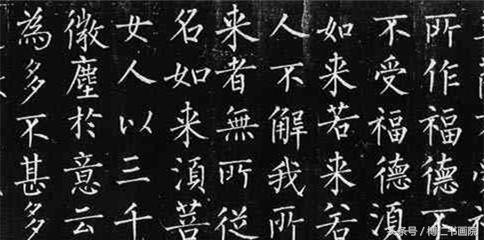 所作福德不
不受福德須
如来若来若
人不解我所
来者無所從
名如来須菩
女人以三千
微塵於意云
為多不甚多
头条号 / 博仁书画院